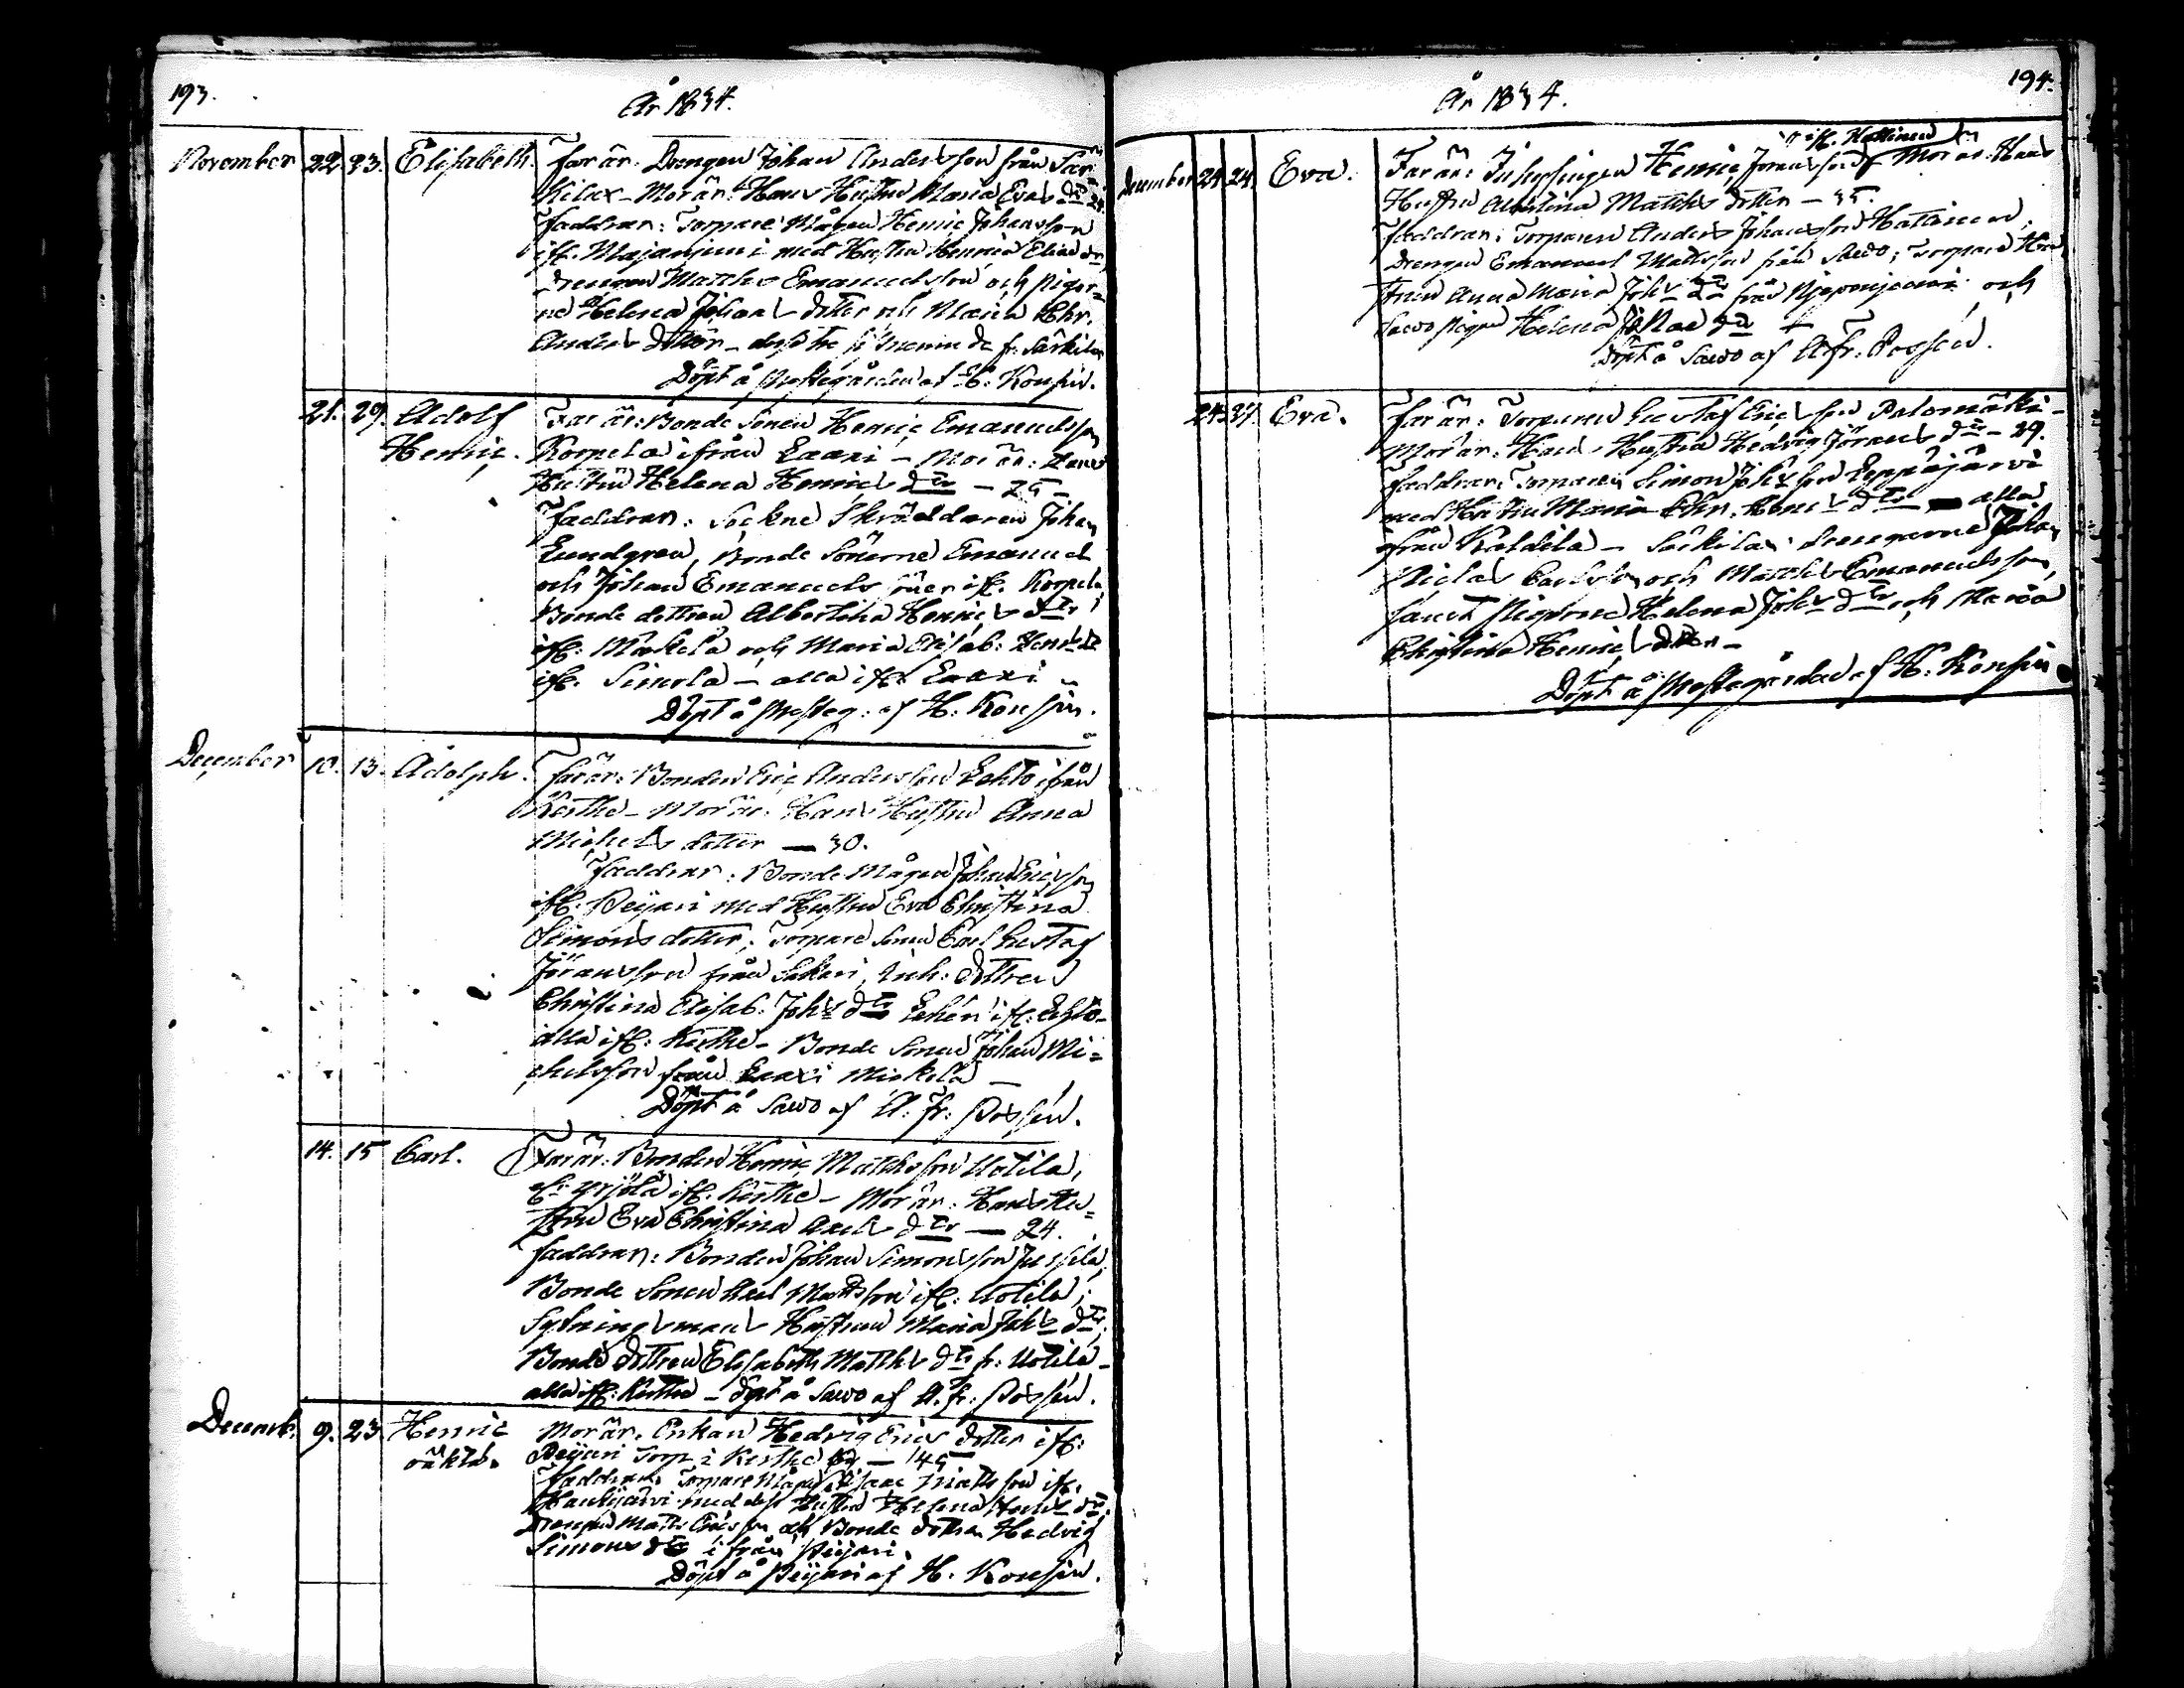 193.
År 1834.
November 22. 23. Elisabeth. Far är: Drengen Johan Andersson från Sär-
kilax – Mor är: Hans Hustru Maria Evas dr 24.
Faddrar: Torpare Mågen Henric Johansson
ifr. Majanjemi med Hustru Henrica Elias dr
Drengen Matths Emanuelsson och Pigor-
ne Helena Johans dotter och Maria Chr.
Anders dotter –
Döpt å Prestegården af H. Konsin.
21. 29. Adolf Far är: Bonde Sonen Henric Emanuelsson
Henric. Korpela ifrån Laaxi – Mor är: Hans
Hustru Helena Henrics dtr – 25 –
Faddrar: Sockne Skräddaren Johan
Lundgren, Bonde Sönerne Emanuel
och Johan Emanuels söner ifr. Korpela,
Bonde dottren Albertina Henrics dtr
ifr. Mäkelä och Maria Elisab: Henrs dr
ifr. Simola – alla ifr. Laaxi
Döpt å Presteg: af H: Konsin.
December 10. 13. Adolph. Far är: Bonden Eric Andersson Lehto ifrån
Kerthe – Mor är: Hans Hustru Anna
Michels dotter – 30.
Faddrar: Bonde Mågen Johan Ericsson
ifr. Peijari med Hustru Eva Christina
Simons dotter, Torpare Sonen Carl Gustaf
Jöransson från Sakari, Inh: dottren
Christina Elisab. Johs dtr Lehén ifr: Lehto –
alla ifr: Kerthe – Bonde Sonen Johan Mi-
chelsson från Laaxi Miekela –
Döpt å Sawo af A: Fr: Possén.
14. 15 Carl. Far är: Bonden Henric Matthsson Uotila,
Yrjölä ifr. Kerthe – Mor är: Hans Hu-
stru Eva Christina Axels dtr – 24.
Faddrar: Bonden Johan Simonsson Jussila,
Bonde Sonen Axel Mattsson ifr: Uotila;
Sytningsmans Hustrun Maria Johs dtr;
Bonde dottren Elisabeth Matths dtr fr: Uotila –
alla ifr: Kerthe – döpt å Sawo af A. fr: Possén.
Decemb. 9. 23. Henric Mor är. Enkan Hedvig Erics dotter ifr:
oäkta. Peijari Torp i Kerthe – 45
Faddrar: Torpare Mågen Isaac Mattsson ifr.
Haukijärvi med dess Hustru Helena Henrs dtr.
Drengen Matts Ericsson och Bonde dottren Hedvig
Simons dtr ifrån Peijari.
Döpt å Peijari af H. Konsin.
194.
År 1834.
December 24. 24. Eva. Far är: Inhysingen Henric Joransson ifr. Hattinen Mor är: Hans
Hustru Albertina Matths dotter – 35.
Faddrar: Torparen Anders Johansson Hattinen,
Drengen Emanuel Mattsson från Sawo; Torpare Hu-
strun Anna Maria Johs dtr från och
Sawo pigan Helena dtr
Döpt å Sawo af A fr: Possén.
24. 27. Eva. Far är: Torparen Gustaf Ericsson Palomäki –
Mor är: Hans Hustru Hedvig Jörans dtr – 29.
Faddrar: Torparen Simon Johsson Leppäjärvi
med Hustru Maria Chr. Henrs dtr – alla
ifrån Kaldila – Särkilax Drengarne Johan
Niclas Carlsson och Matths Emanuelsson,
samt Pigorne Helena Johs dtr och Maria
Christina Henrics dotter –
Döpt å Prestegården af H: Konsin